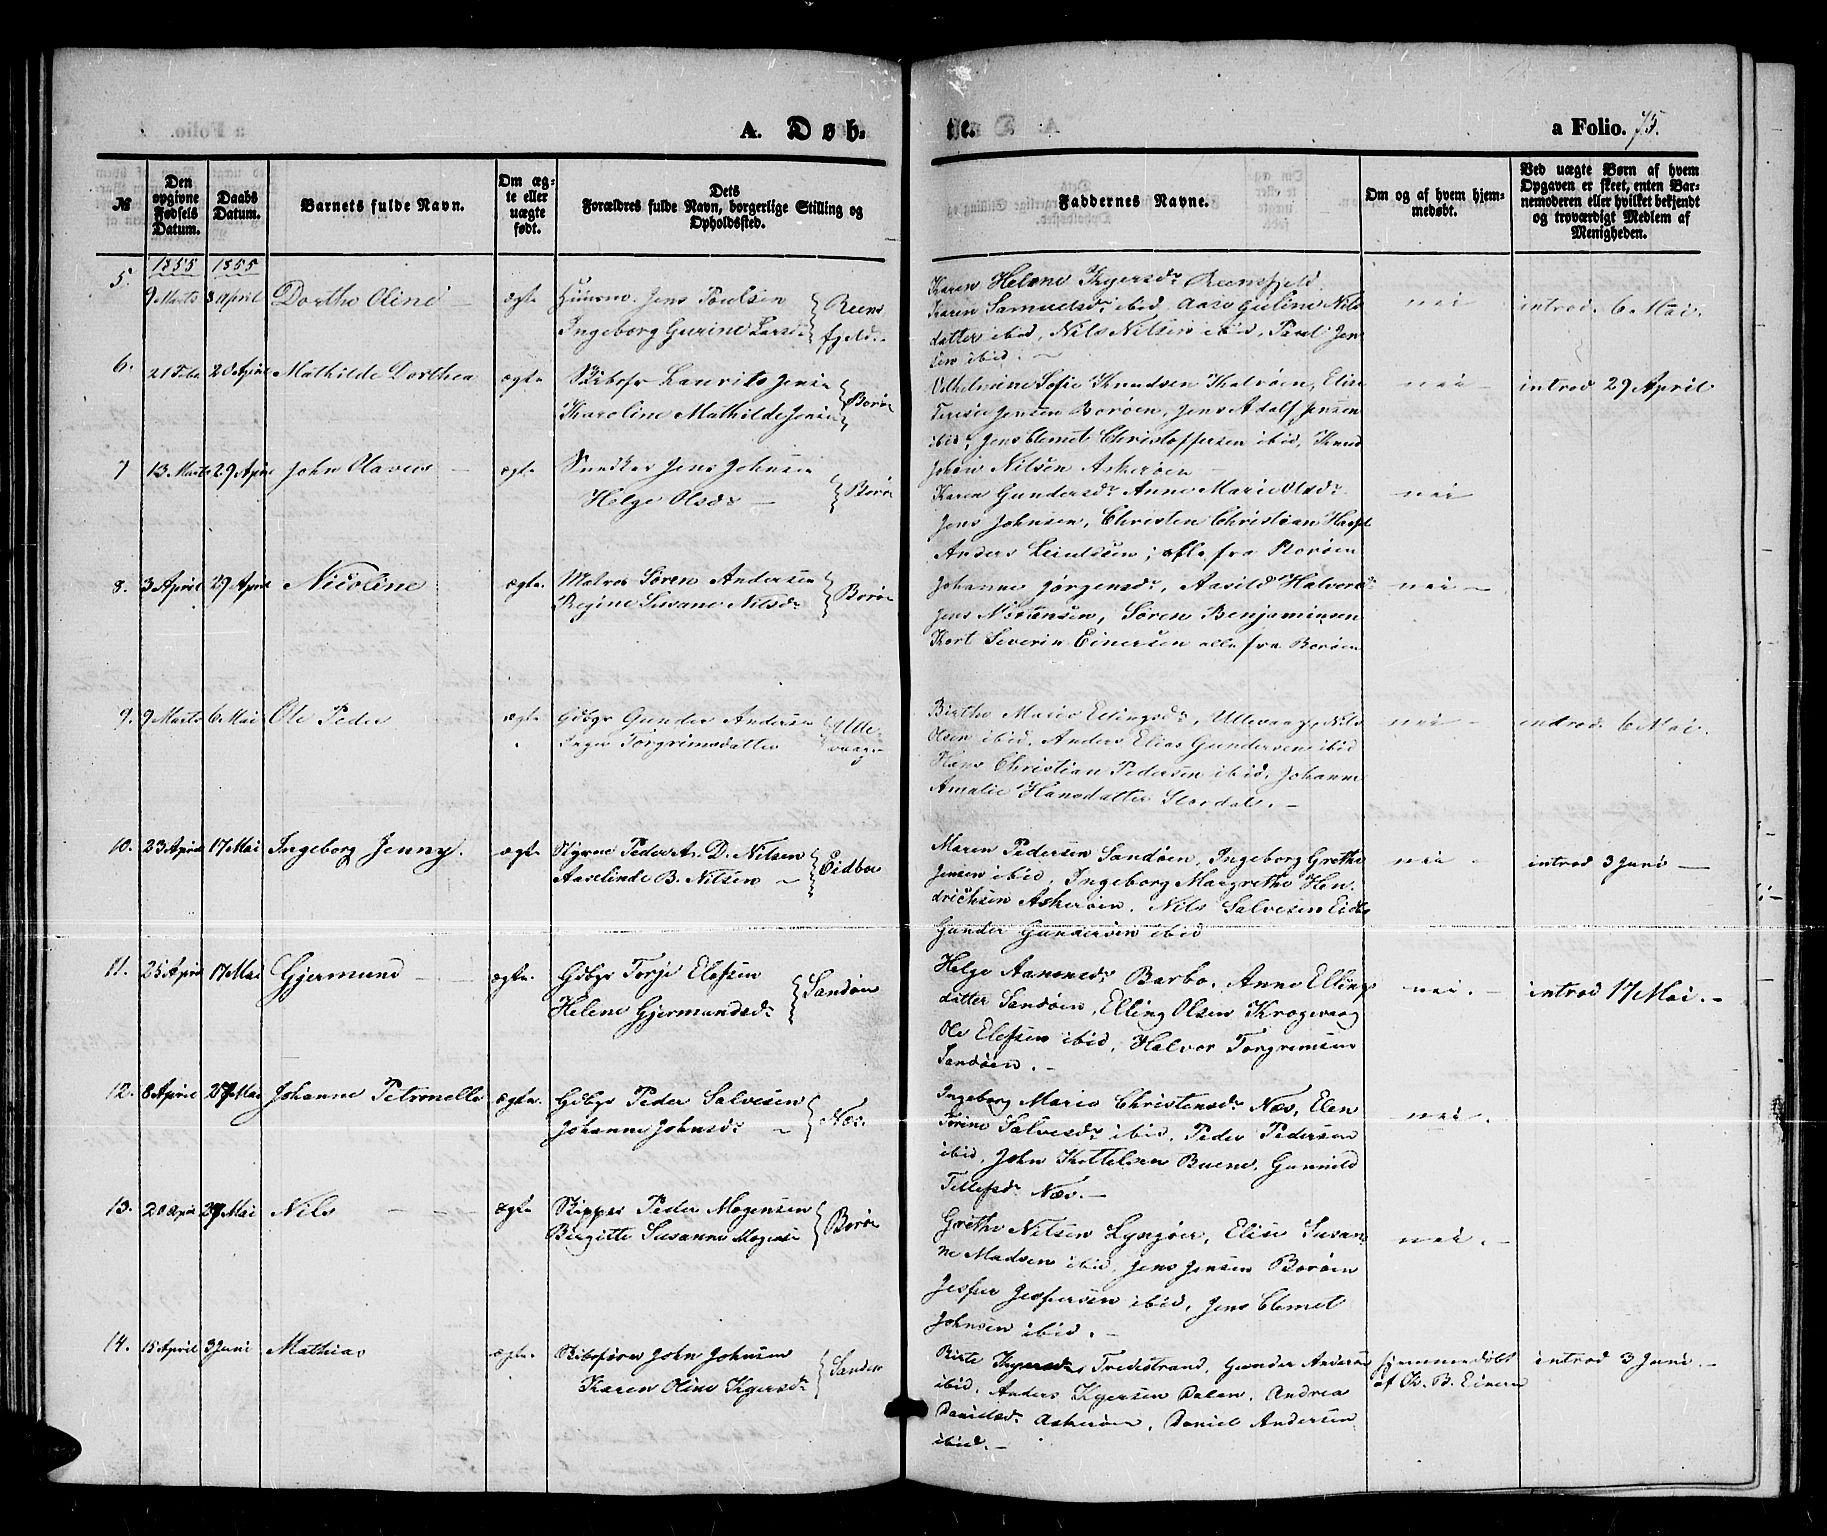 A. Døb-
te.
a Folio. 75.
№
Den opgivne Fødsels Datum.
Daabs Datum.
Barnets fulde Navn.
Om ægte eller uægte født.
Dets Forældres fulde Navn, borgerlige Stilling og Opholdssted.
Faddernes Navne.
Om og af hvem hjemmedøbt.
Ved uægte Børn af hvem Opgaven er skeet, enten Barnemoderen eller hvilket bekjendt og troværdigt Medlem af Menigheden.
1855 1855
5. 9 Marts 8 April Dorthe Oline ægte Huusm. Jens Poulsen
Ingeborg Gurine Larsd. Reensfjeld.
Karen Helene
Karen Samuelsd. ibid, Aase Guline Nils
datter ibid, Nils Nilsen ibid, Poul Jen
sen ibid.
nei introd. 6 Mai.
6. 21 Feb 20 April Mathilde Dorthea ægte Laurits Jensen
Karoline Mathilde Jensen Borøe
Vilhelmine Sofie Knudsen Kalvøen, Elise
Jensen Borøen, Jens Adolf Jensen
ibid, Jens Clemet Christoffersen ibid, Knud
Johan Nilsen Askerøen
nei introd 29 April
7 13 Marts 29 April John Olavus ægte Snedker Jens Johnsen
Helge Olsd. Borøe
Karen Gundersd. Anne Marie Olsd.
Jens Johnsen, Christen Christian
Anders alle fra Borøen
nei
8. 3 April 29 April Nicoline ægte. Matros Søren Andersen
Regine Susane Nilsd. Borøe
Johanne Jørgensd., Aasild Halvorsd.
Jens Mortensen, Søren Benjaminsen
Kort Severin Einersen alle fra Borøen
nei
9. 9 Marts 6 Mai Ole Peder ægte Gdbgr Gunder Andersen
Inger Torgrimsdatter
Birthe Marie Ellingsd., Nils
Olsen ibid, Anders Elias Gundersen ibid
Hans Christian Pedersen ibid, Johanne
Amalie Hansdatter
nei introd. 6 Mai.
10. 23 April 17 Mai Ingeborg Jenny. ægte Peder A. D. Nilsen
Aaselinde B. Nilsen Eidboe
Maren Pedersen Sandøen, Ingeborg Grethe
Jensen ibid, Ingeborg Margrethe Hen-
drichsen Askerøen, Nils Salvesen
Gunder Gundersen ibid
nei introd 3 Juni
11. 25 April 17 Mai Gjermund ægte. Gdbgr Torje Elefsen
Helene Gjermundsd. Sandøen
Helge Aanonsd. Barbo, Anne Ellings
datter Sandøen, Elling Olsen Krogevaag
Ole Elefsen ibid, Halvor Torgrimsen
Sandøen.
nei. introd 17 Mai.
12. 8 April 28 Mai Johanne Petronelle ægte. Gdbgr Peder Salvesen
Johanne Johnsd. Næs.
Ingeborg Marie Christensd. Næs, Elen
Sørine Salvesd. ibid, Peder Pedersen
ibid, John Kittelsen Buene, Gunnild
Tellefsd. Næs.
nei.
13. 20 April 28 Mai Nils ægte. Skipper Peder Mogensen
Birgitte Susanne Mogensen Borøe
Grethe Nilsen Lyngøer, Elise Susan-
ne Madsen ibid, Jens Jensen Borøen
Jesper Jespersen ibid, Jens Clemet
Johnsen ibid.
nei.
14. 15 April 3 Juni Mathias ægte. John Johnsen
Karen Oline Sandøe
Birte Tvedestrand, Gunder Andersen
ibid, Anders Dalen, Andrea
Danielsd. Askerøen, Daniel Andersen
ibid.
hjemmedøbt
af K. B. Einersen
introd 3 Juni.